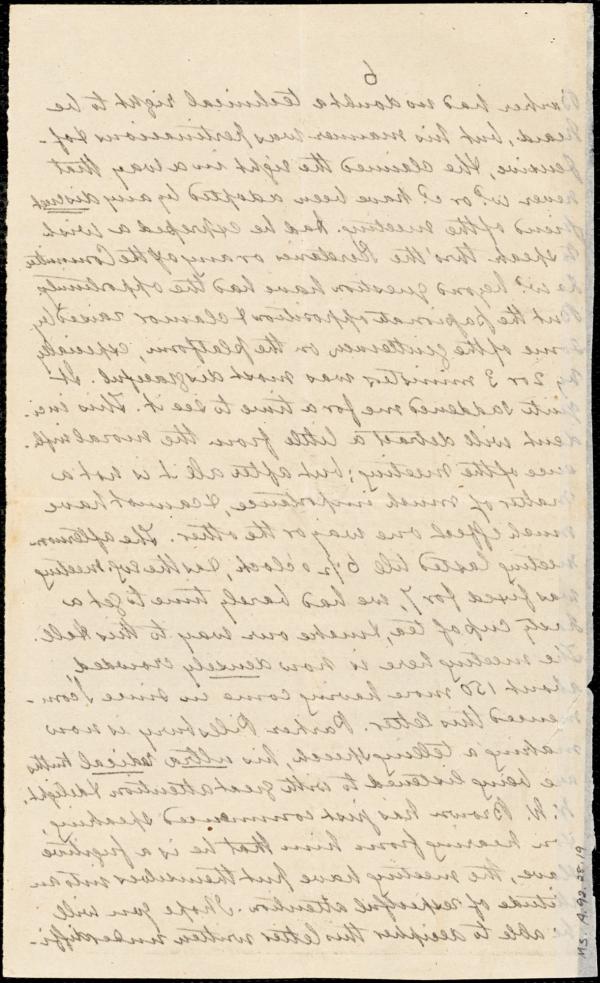 6
Barker had no doubt a technical right to be
heard, but his manner was pertinacious & of-
fensive, & he claimed the right in a way that
never wd. or cd. have been adopted by any distinct
friend of the meeting. Had he expressed a wish
to speak thro' the Resident or any of the Committee
he wd. beyond question have had the opportunity.
But the passionate opposition & clamor raised by
some of the gentlemen on the platform, especially
by 2 or 3 ministers was most disgraceful. It
quite saddened me for a time to see it. This inci-
dent will detract a little from the moral infl-
uence of the meeting; but after all it is not a
matter of much importance, & cannot have
much effect one way or the other. The afternoon
meeting lasted till 6 1/2 o'clock, & as the evg meeting
was fixed for 7, we had barely time to get a
hasty cup of tea, & make our way to this Hall.
The meeting here is now densely crowded
about 150 more having come in since I com-
menced this letter. Parker Pillsbury is now
making a telling speech, his ultra radical truths
are being listened to with great attention & delight.
W. W. Brown has just commenced speaking,
on hearing from him that he is a fugitive
slave, the meeting have put themselves into an
attitude of respectful attention. I hope you will
be able to decipher this letter written under diffi-
MS. A.9.2.28.19